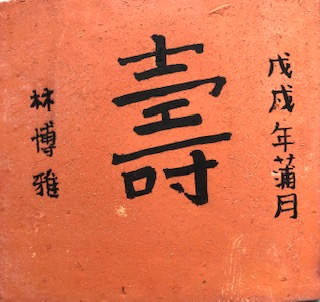 戊戌年蒲月
壽
林博雅